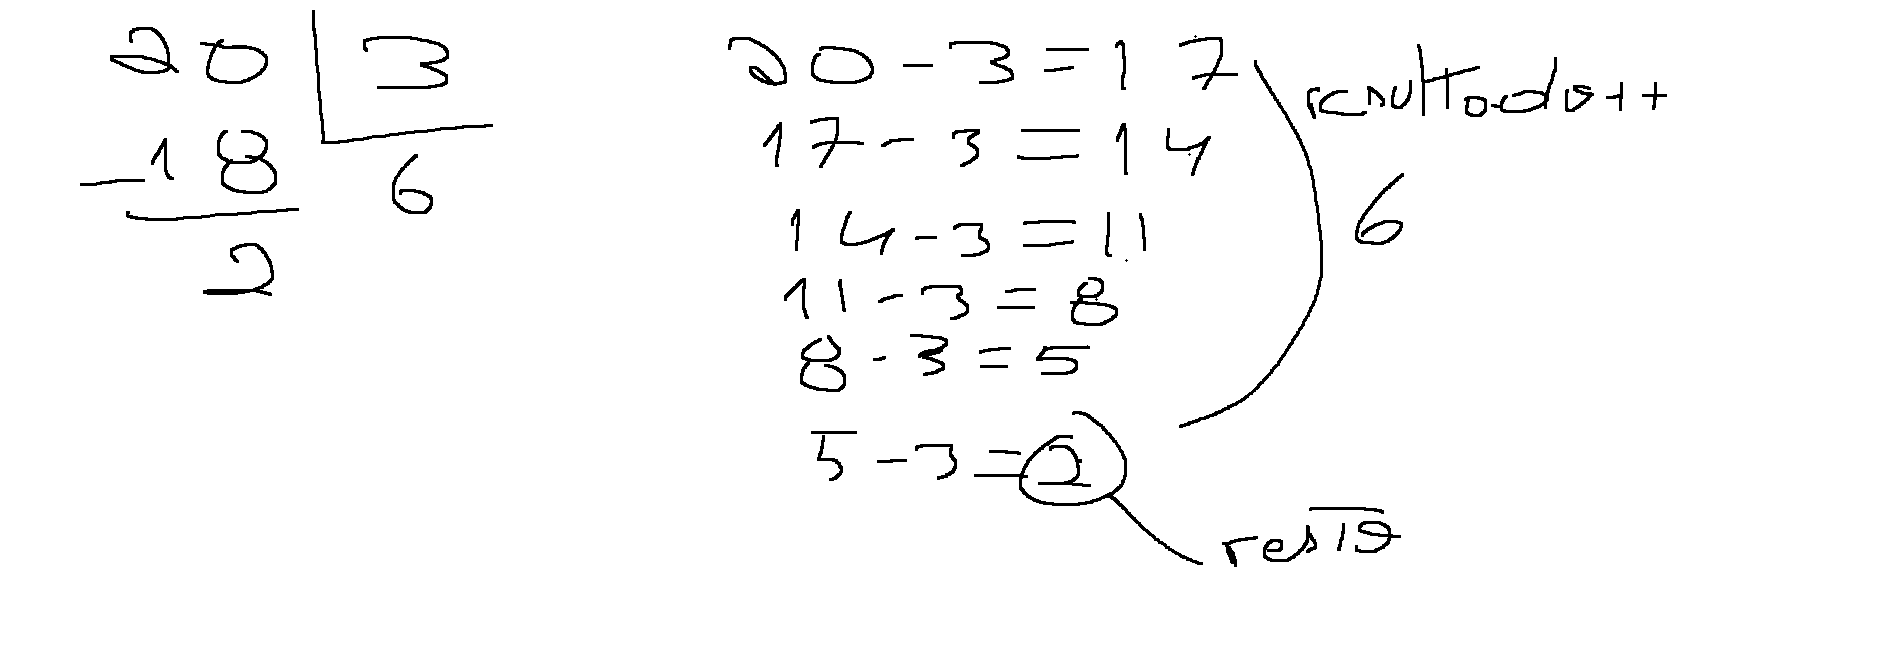 20 3
-18 6
2
20-3=17
17-3=14
14-3=11
11-3=8
8-3=5
5-3=2
resultado++
6
resto